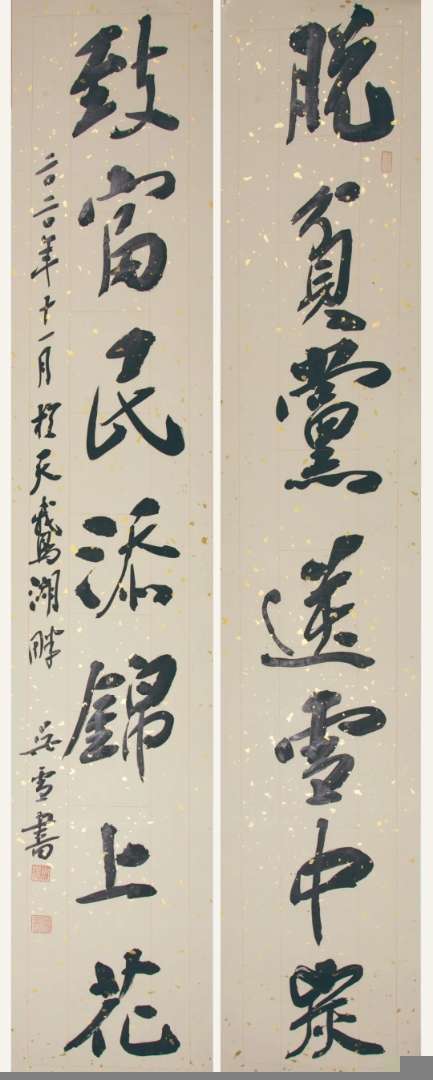 脱贫黨送雪中炭
致富民添錦上花
二〇二〇年十一月於天鵝湖畔 吴雪書